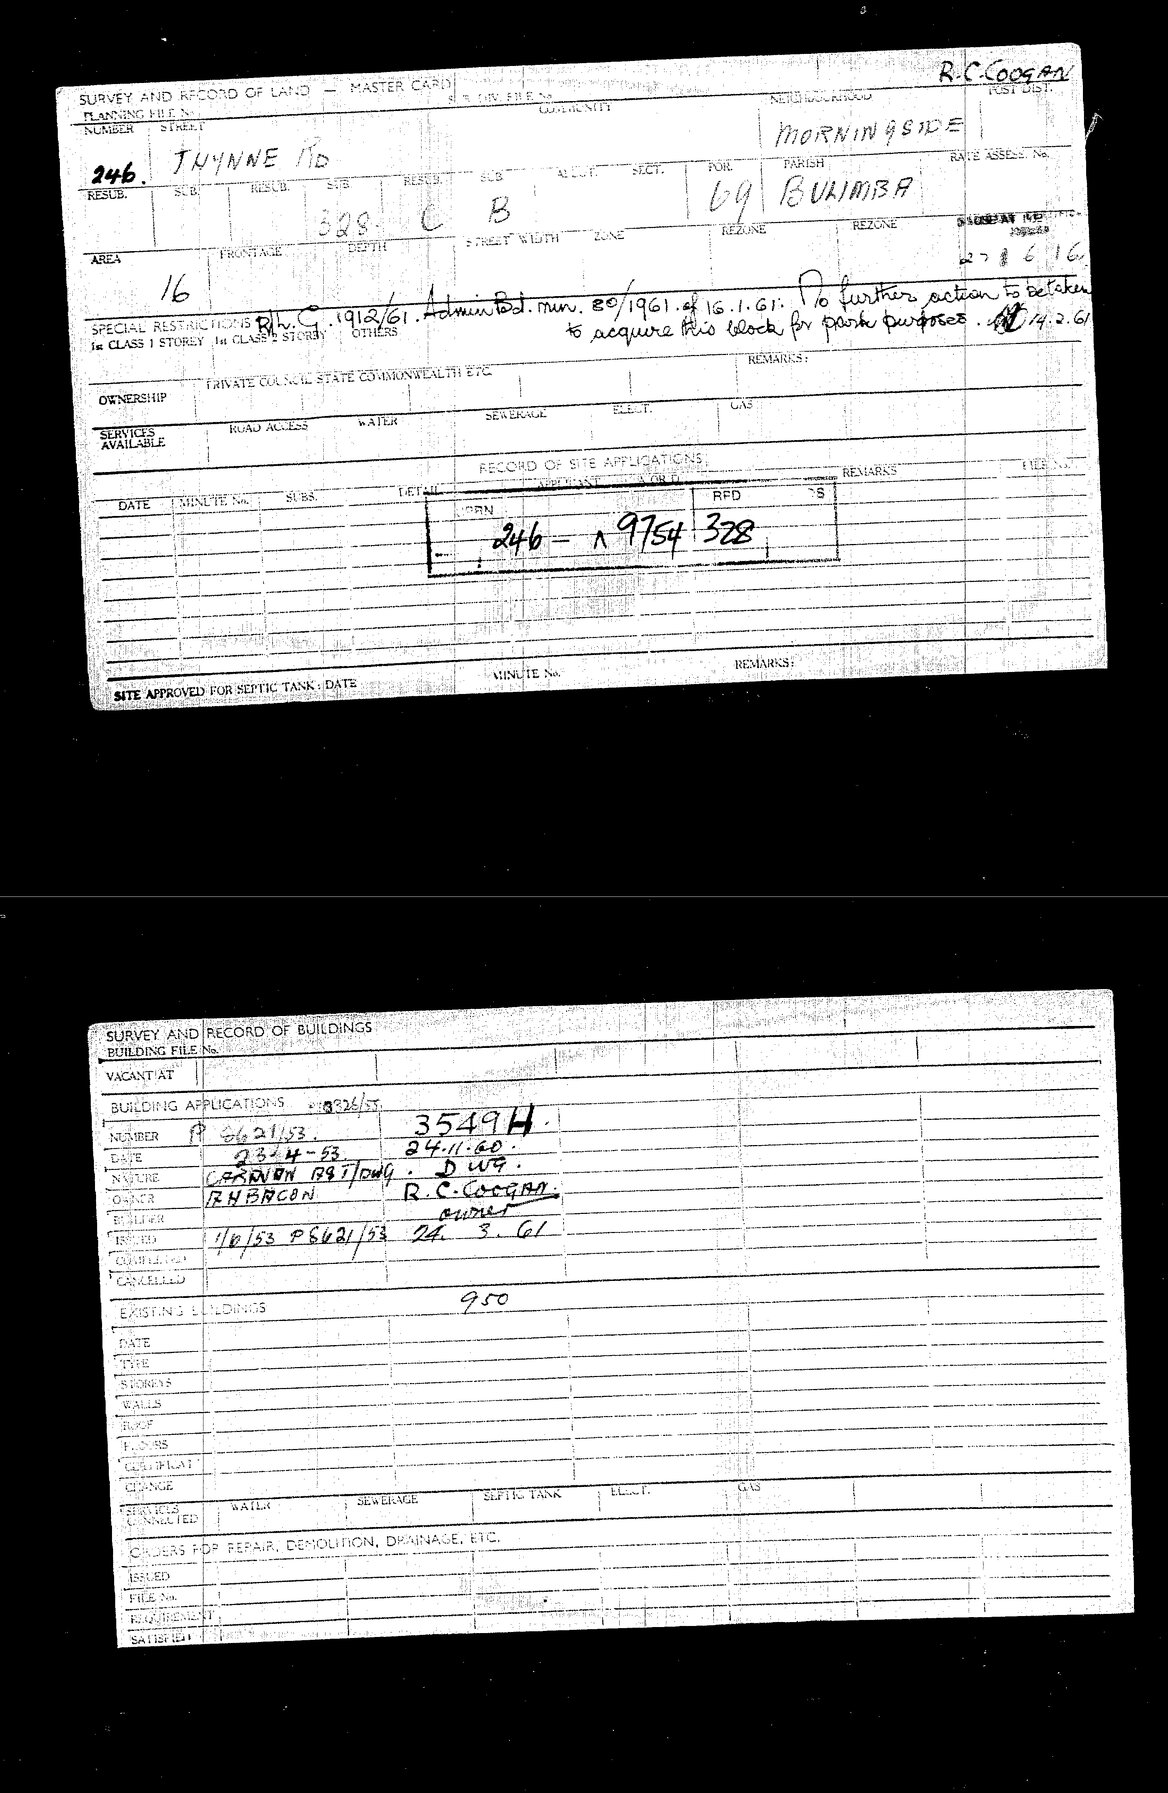 R.C. COOGAN
SURVEY AND RECORD OF LAND — MASTER CARD
PLANNING FILE No. SUB. DIV. FILE No. COMMUNITY NEIGHBOURHOOD POST DIST.
NUMBER STREET
246. THYNNE RD MORNINGSIDE
RESUB. SUB. RESUB. SUB. RESUB. SUB. ALLOT. SECT. POR. PARISH RATE ASSESS. No.
328 C B 69 BULIMBA
AREA FRONTAGE DEPTH STREET WIDTH ZONE REZONE REZONE
16
SPECIAL RESTRICTIONS 1912/61. Admin Bd. min. 80/1961 of 16.1.61. No further action to be taken
1st CLASS 1 STOREY 1st CLASS 2 STOREY OTHERS to acquire this block for park purposes. 14.2.61
OWNERSHIP PRIVATE COUNCIL STATE COMMONWEALTH ETC. REMARKS:
SERVICES AVAILABLE ROAD ACCESS WATER SEWERAGE ELECT. GAS
RECORD OF SITE APPLICATIONS
DATE MINUTE No. SUBS. DETAIL APPLICANT REMARKS FILE No.
RPD
246 — 9754 328
SITE APPROVED FOR SEPTIC TANK: DATE MINUTE No. REMARKS:
SURVEY AND RECORD OF BUILDINGS
BUILDING FILE No.
VACANT AT
BUILDING APPLICATIONS
NUMBER P 8621/53. 3549H.
DATE 23-4-53 24.11.60.
NATURE DWG.
OWNER A H BACON R.C. COOGAN.
BUILDER owner
ISSUED 1/6/53 P8621/53 24. 3. 61
COMPLETED
CANCELLED
EXISTING BUILDINGS 950
DATE
TYPE
STOREYS
WALLS
ROOF
FLOORS
CERTIFICATE
CHANGE
SERVICES CONNECTED WATER SEWERAGE SEPTIC TANK ELECT. GAS
ORDERS FOR REPAIR, DEMOLITION, DRAINAGE, ETC.
ISSUED
FILE No.
REQUIREMENT
SATISFIED